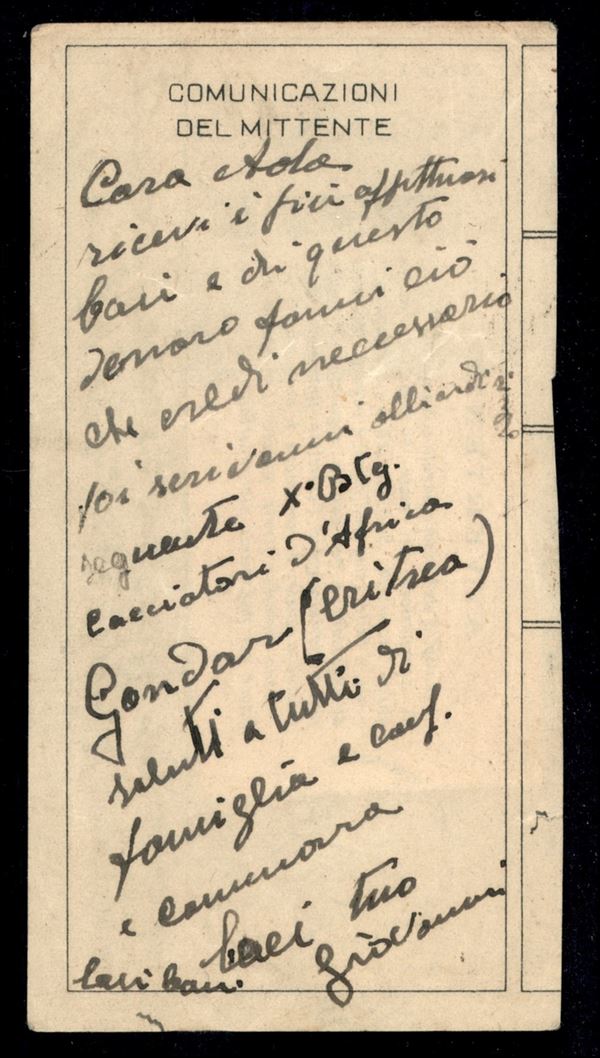 COMUNICAZIONI
DEL MITTENTE
Cara Ada
ricevi i più affettuosi
baci e di questo
denaro fanni ciò
che credi neccessario
poi scrivammi
seguente X° Btg.
cacciatori d'Africa
Gondar (Eritrea)
saluti a tutti di
famiglia e
e commara
baci tuo
baci baci Giovanni